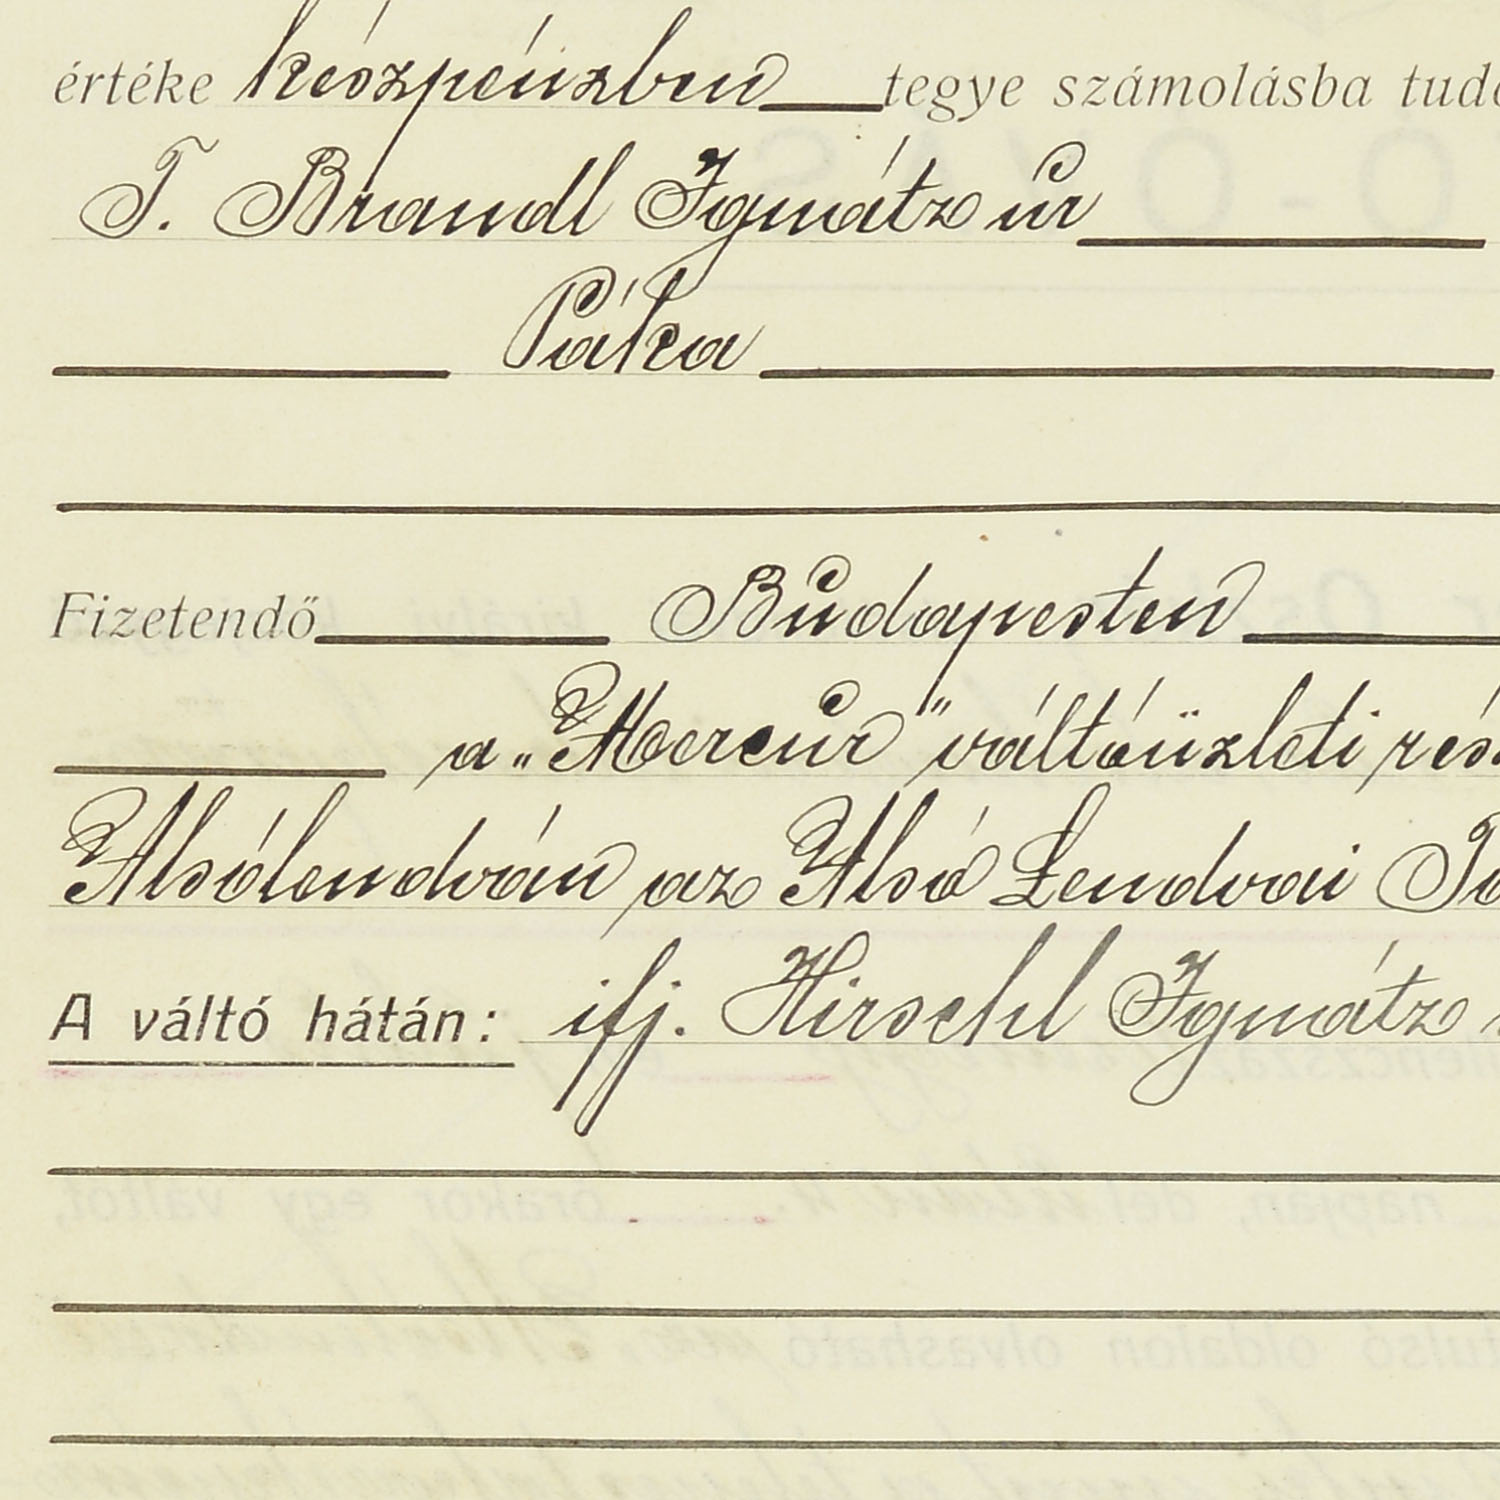 értéke készpénzben tegye számolásba
T. Brandl Ignátz úr
Páka
Fizetendő Budapesten
a „Mercur” váltóüzleti
Alsólendván az Alsó Lendvai
A váltó hátán: ifj. Hirschl Ignátz